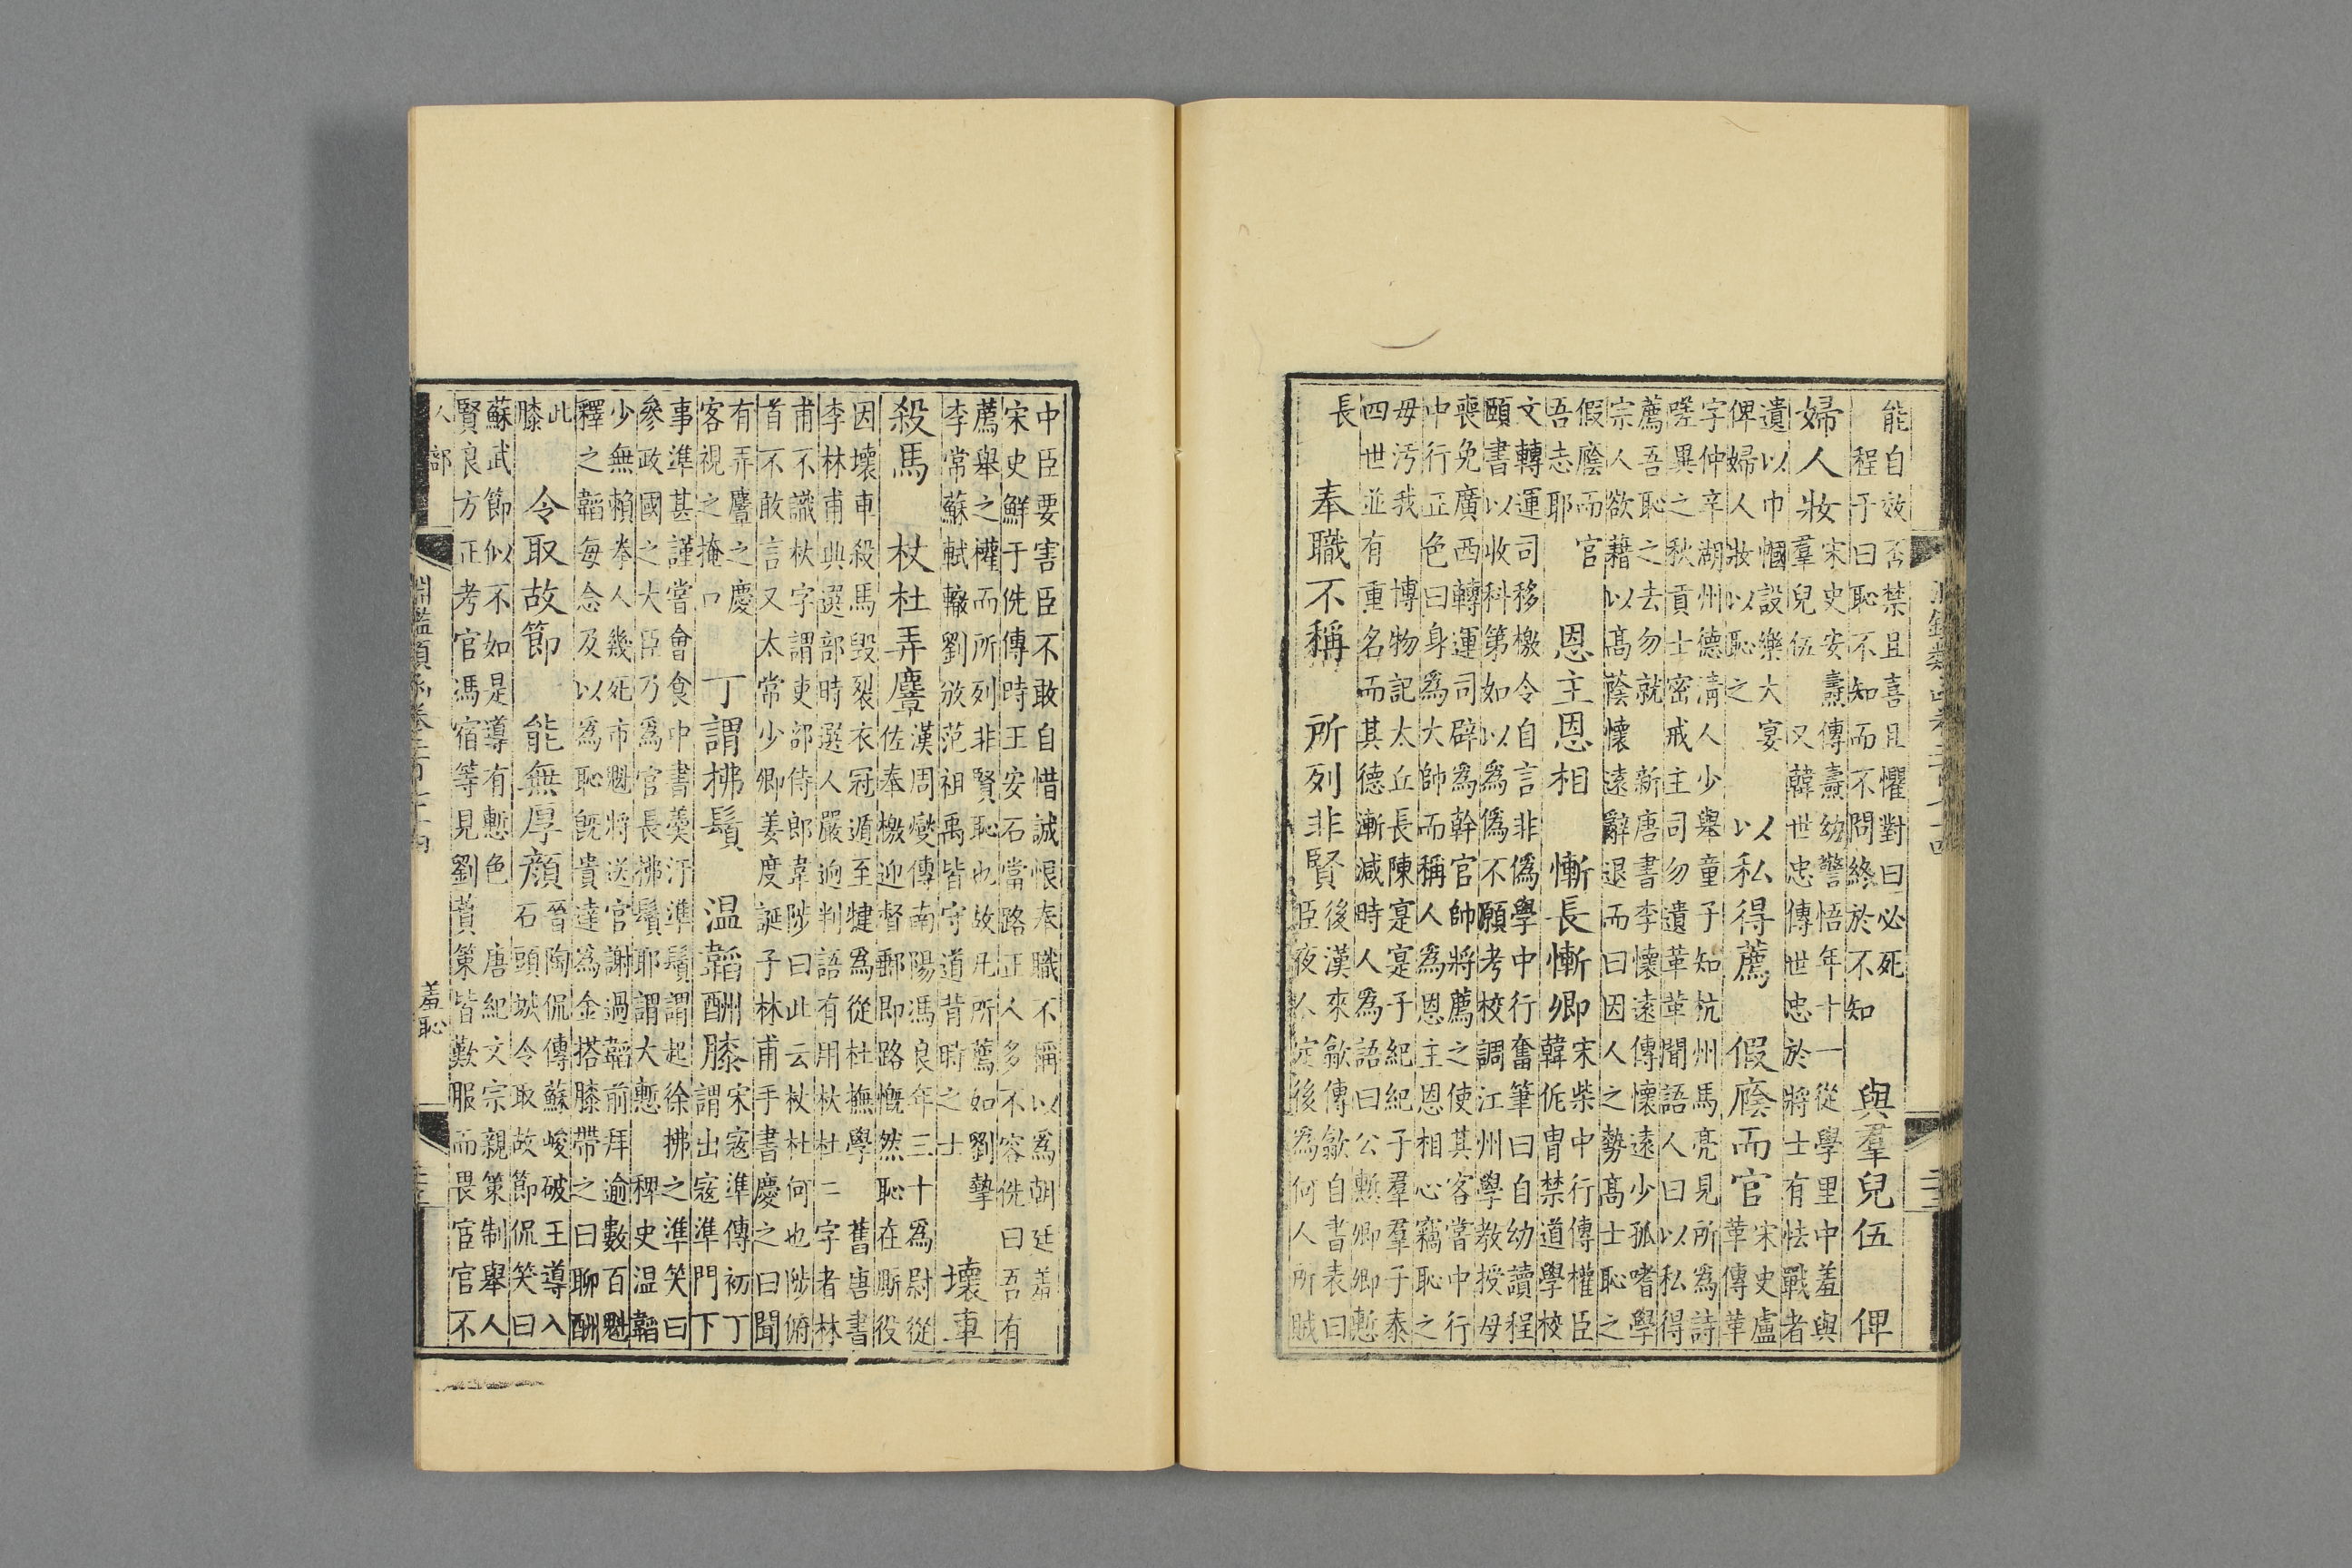 能自效否禁且喜且懼對曰必死
程子曰恥不知而不問終於不知
與羣兒伍 俾
婦人妝
宋史安燾傳燾幼警悟年十一從學里中羞與
羣兒伍 又韓世忠傳世忠於將士有怯戰者
遺以巾幗設樂大宴
俾婦人妝以恥之
以私得薦 假廕而官
宋史盧
革傳革
字仲辛湖州德淸人少舉童子知杭州馬亮見所爲詩
嗟異之秋貢士密戒主司勿遺革革聞語人曰以私得
薦吾恥之去勿就 新唐書李懷遠傳懷遠少孤嗜學
宗人欲藉以高蔭懷遠辭退而曰因人之勢高士恥之
假廕而官
吾志耶
恩主恩相 慚長慚卿
宋柴中行傳權臣
韓侂冑禁道學校
文轉運司移檄令自言非僞學中行奮筆曰自幼讀程
頤書以收科第如以爲僞不願考校調江州學教授母
喪免廣西轉運司辟爲幹官帥將薦之使其客嘗中行
中行正色曰身爲大帥而稱人爲恩主恩相心竊恥之
毋汚我 博物記太丘長陳寔寔子紀紀子羣羣子泰
四世並有重名而其德漸減時人爲語曰公慙卿卿慙
長
奉職不稱 所列非賢
後漢來歙傳歙自書表曰
臣夜人定後爲何人所賊
中臣要害臣不敢自惜誠恨奉職不稱以爲朝廷羞
宋史鮮于侁傳時王安石當路正人多不容侁曰吾有
薦舉之權而所列非賢恥也故凡所薦如劉摯
李常蘇軾轍劉攽范祖禹皆守道背時之士
壞車
殺馬 杖杜弄麞
漢周燮傳南陽馮良年三十爲尉從
佐奉檄迎督郵即路慨然恥在厮役
因壞車殺馬毀裂衣冠遁至犍爲從杜撫學 舊唐書
李林甫典選部時選人嚴逈判語有用杕杜二字者林
甫不識杕字謂吏部侍郎韋陟曰此云杖杜何也陟俯
首不敢言又太常少卿姜度誕子林甫手書慶之曰聞
有弄麞之慶
客視之掩口
丁謂拂鬚 温韜酬膝
宋寇準傳初丁
謂出寇準門下
事準甚謹嘗會食中書羮汙準鬚謂起徐拂之準笑曰
參政國之大臣乃爲官長拂鬚耶謂大慙 稗史温韜
少無賴拳人幾死市魁將送官謝過韜前拜逾數百魁
釋之韜每念及以爲恥旣貴達爲金搭膝帶之曰聊酬
此
膝
令取故節 能無厚顏
晉陶侃傳蘇峻破王導入
石頭城令取故節侃笑曰
蘇武節似不如是導有慙色 唐紀文宗親策制舉人
賢良方正考官馮宿等見劉蕡策皆歎服而畏宦官不
人部
羞恥